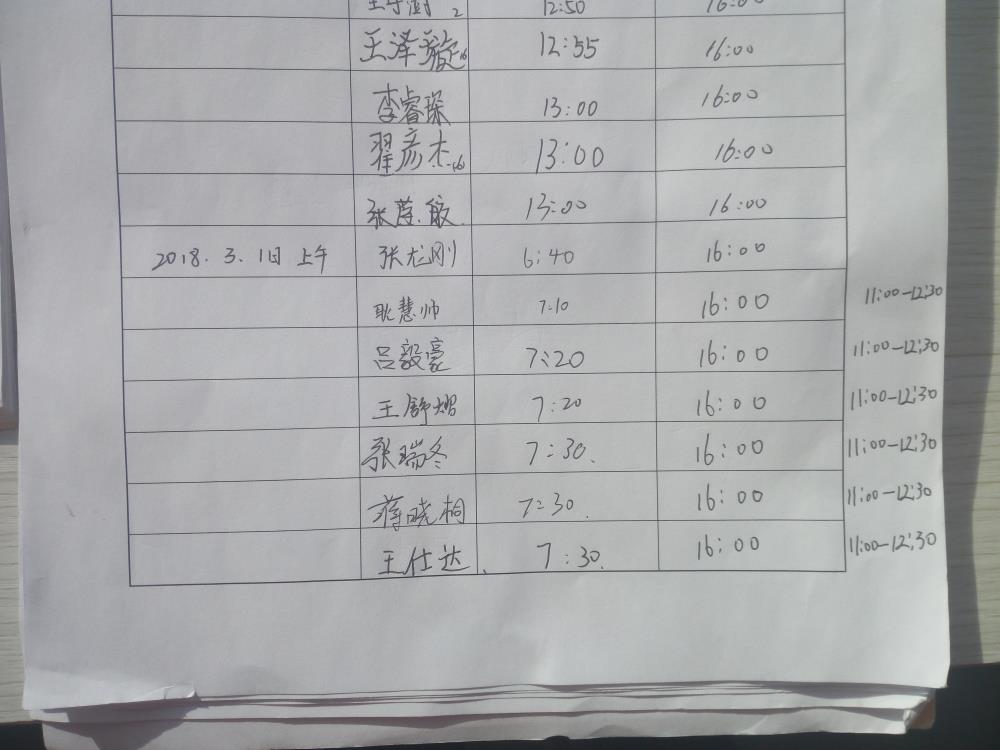 12:50 16:00
王泽璇 12:55 16:00
李睿琛 13:00 16:00
翟彦杰 13:00 16:00
13:00 16:00
2018.3.1日 上午 张龙刚 6:40 16:00
耿慧帅 7:10 16:00 11:00-12:30
吕毅豪 7:20 16:00 11:00-12:30
王舒熠 7:20 16:00 11:00-12:30
张瑞冬 7:30. 16:00 11:00-12:30
蒋晓桐 7:30. 16:00 11:00-12:30
王仕达 7:30. 16:00 11:00-12:30